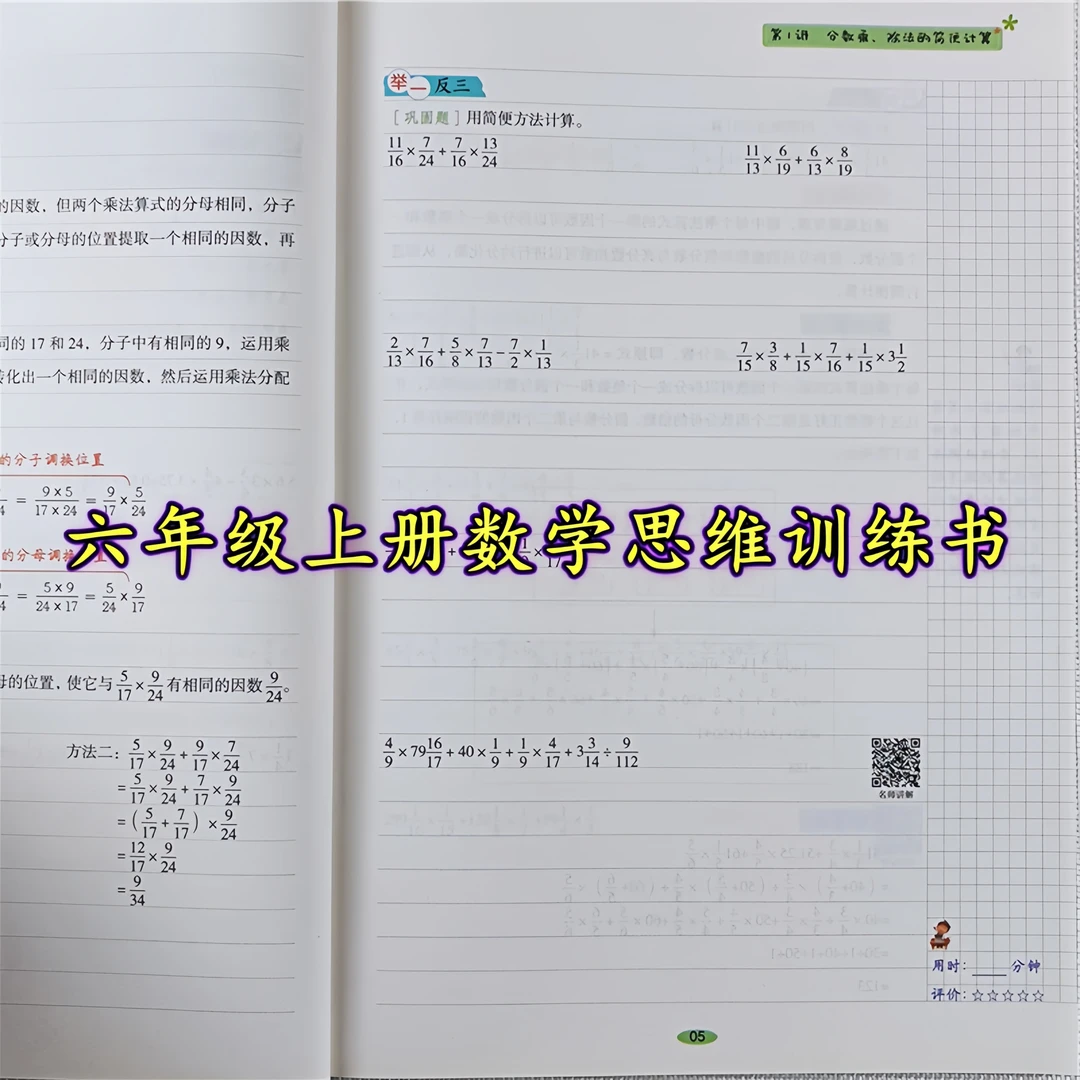 的因数，但两个乘法算式的分母相同，分子
分子或分母的位置提取一个相同的因数，再
同的 17 和 24，分子中有相同的 9，运用乘
转化出一个相同的因数，然后运用乘法分配
的分子调换位置
= 9×5/17×24 = 9/17 × 5/24
的分母调换位置
= 5×9/24×17 = 5/24 × 9/17
母的位置，使它与 5/17 × 9/24 有相同的因数 9/24。
方法二：5/17 × 9/24 + 9/17 × 7/24
= 5/17 × 9/24 + 7/17 × 9/24
= (5/17 + 7/17) × 9/24
= 12/17 × 9/24
= 9/34
第1讲 分数乘、除法的简便计算
举一反三
[巩固题] 用简便方法计算。
11/16 × 7/24 + 7/16 × 13/24
11/13 × 6/19 + 6/13 × 8/19
2/13 × 7/16 + 5/8 × 7/13 − 7/2 × 1/13
7/15 × 3/8 + 1/15 × 7/16 + 1/15 × 3 1/2
六年级上册数学思维训练书
4/9 × 79 16/17 + 40 × 1/9 + 1/9 × 4/17 + 3 3/14 ÷ 9/112
名师讲解
用时：____分钟
评价：☆☆☆☆☆
05